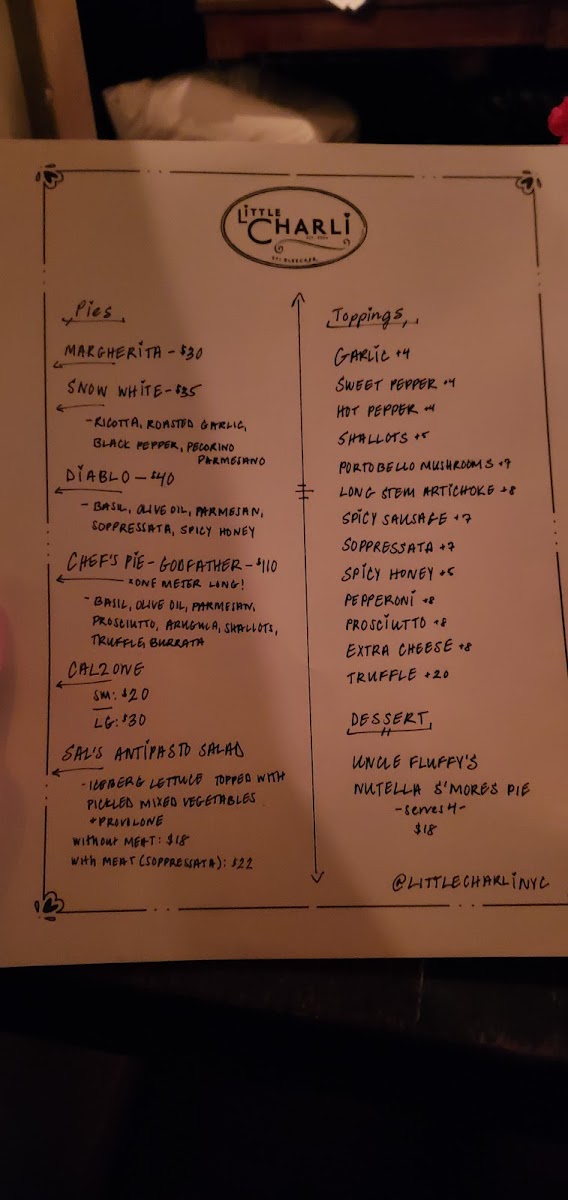 LITTLE
CHARLI
Pies
MARGHERITA - $30
SNOW WHITE - $35
- RICOTTA, ROASTED GARLIC,
BLACK PEPPER, PECORINO
PARMESANO
DIABLO - $40
- BASIL, OLIVE OIL, PARMESAN,
SOPPRESSATA, SPICY HONEY
CHEF'S PIE - GODFATHER - $110
*ONE METER LONG!
- BASIL, OLIVE OIL, PARMESAN,
PROSCIUTTO, ARUGULA, SHALLOTS,
TRUFFLE, BURRATA
CALZONE
SM: $20
LG: $30
SAL'S ANTIPASTO SALAD
- ICEBERG LETTUCE TOPPED WITH
PICKLED MIXED VEGETABLES
+ PROVOLONE
WITHOUT MEAT: $18
WITH MEAT (SOPPRESSATA): $22
Toppings
GARLIC +4
SWEET PEPPER +4
HOT PEPPER +4
SHALLOTS +5
PORTOBELLO MUSHROOMS +7
LONG STEM ARTICHOKE +8
SPICY SAUSAGE +7
SOPPRESSATA +7
SPICY HONEY +5
PEPPERONI +8
PROSCIUTTO +8
EXTRA CHEESE +8
TRUFFLE +20
DESSERT
UNCLE FLUFFY'S
NUTELLA S'MORES PIE
- serves 4 -
$18
@LITTLECHARLINYC